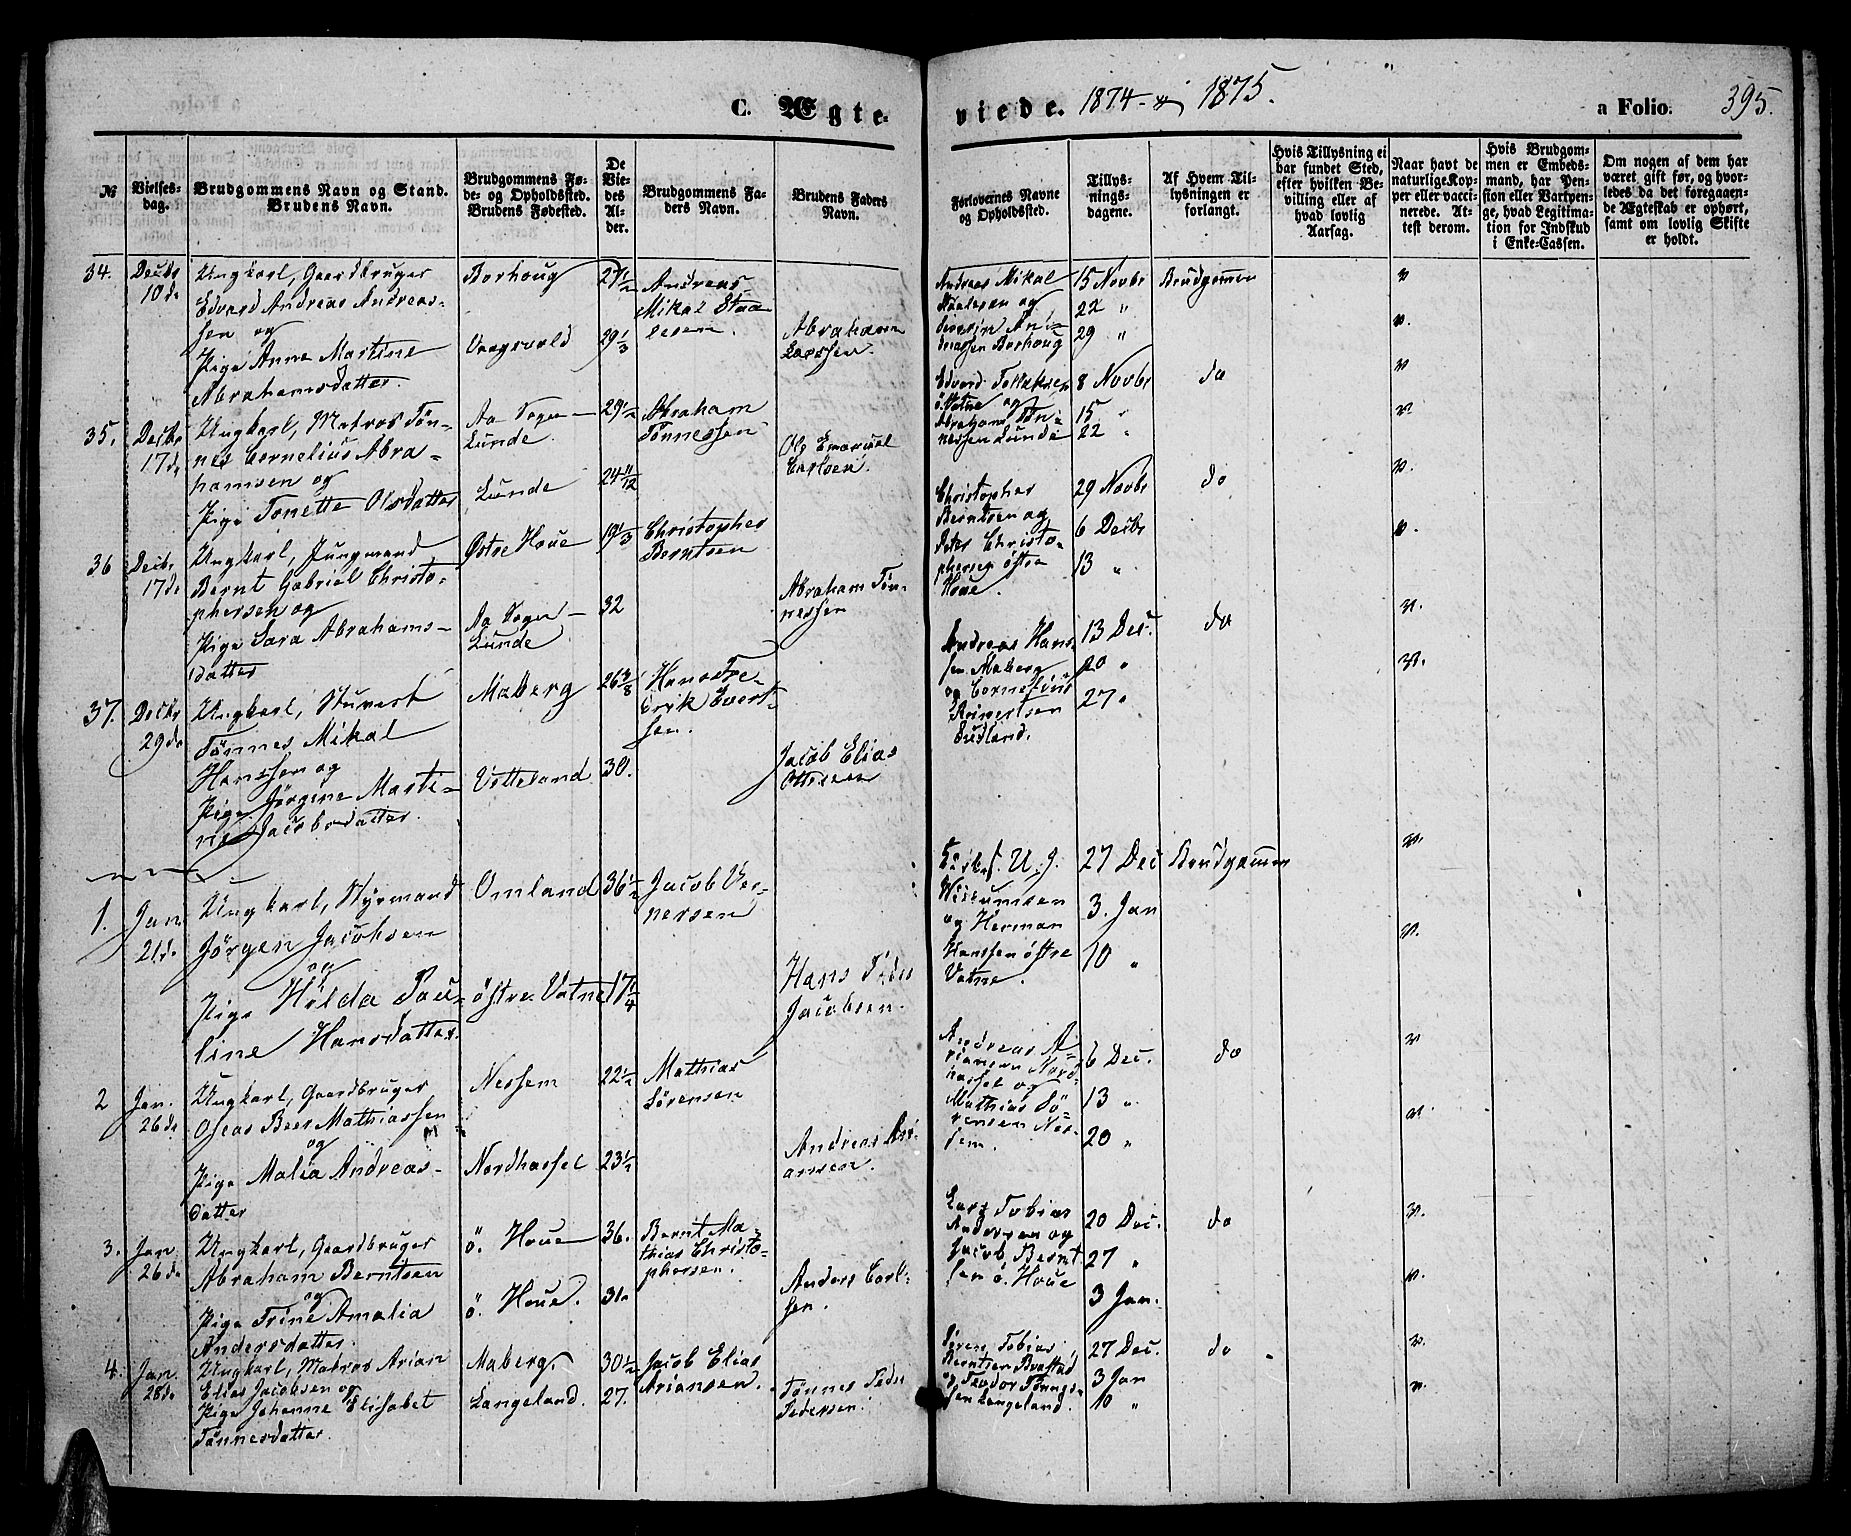 C. Ægte-
viede. 1874 - 1875.
a Folio. 395.
№
Vielses-
dag.
Brudgommens Navn og Stand.
Brudens Navn.
Brudgommens Fø-
de- og Opholdssted.
Brudens Fødested.
De
Vie-
des
Al-
der.
Brudgommens Fa-
ders Navn.
Brudens Faders
Navn.
Forlovernes Navne
og Opholdssted.
Tillys-
nings-
dagene.
Af Hvem Til-
lysningen er
forlangt.
Hvis Tillysning ei
har fundet Sted,
efter hvilken Be-
villing eller af
hvad lovlig
Aarsag.
Naar havt de
naturlige Kop-
per eller vacci-
nerede. At-
test derom.
Hvis Brudgom-
men er Embeds-
mand, har Pen-
sion eller Vartpen-
ge, hvad Legitima-
tion for Indskud
i Enke-Cassen.
Om nogen af dem har
været gift før, og hvor-
ledes da det foregaaen-
de Ægteskab er ophørt,
samt om lovlig Skifte
er holdt.
34.
Decbr
10de
Ungkarl, Gaardbruger
Edvard Andreas Andreas-
sen og
Pige Anne Martine
Abrahamsdatter.
Borhoug
Vaagsvold
27 1/2
29 1/3
Andreas
Mikal Staa-
lesen.
Abraham
Larssen.
Andreas Mikal
Staalesen og
Andreassen Borhoug
15 Novbr
22 "
29 "
Brudgommen
v
v.
35.
Decbr
17de
Ungkarl, Matros Tøn-
nes Cornelius Abra-
hamsen og
Pige Tonette Olsdatter
Aa Sogn -
Lunde.
Lunde
29 1/2
24 11/12
Abraham
Tønnessen
Ole Emanuel
Carlsen.
Edvard
ö. Vatne og
Abraham Tøn-
nessen Lunde
8 Novbr
15 "
22 "
do
v
v.
36
Decbr
17de
Ungkarl, Jungmand
Bernt Gabriel Christo-
phersen og
Pige Sara Abrahams-
datter
Østre Houe
Aa Sogn -
Lunde
19 1/3
32
Christopher
Berntsen
Abraham Tøn-
nessen
Christopher
Berntsen og
Peter Christo-
phersen østre
Houe.
29 Novbr
6 Decbr
13 "
do
v.
v.
37.
Decbr
29de
Ungkarl, Stuvert
Tönnes Mikal
Hanssen og
Pige Jørgine Marti-
ne Jacobsdatter.
Maberg
Vetteland
30.
Hans Fre-
drik Evert-
sen.
Jacob Elias
Ottersen
Andreas Hans-
sen Maberg
og Cornelius
Reinertsen
Sudland.
13 Dec.
20 "
27 "
do
v.
v.
1.
Jan.
21de
Ungkarl, Styrmand
Jörgen Jacobsen
og
Pige Hilda Pau-
line Hansdatter.
Omland
östre Vatne
36 1/2
17 1/4
Jacob Ver-
nersen
Hans Peder
Jacobsen.
og Herman
Hanssen østre
Vatne.
27 Dec
3. Jan
10 "
Brudgommen
v.
v.
2
Jan.
26de
Ungkarl, Gaardbruger
Oseas Beer Mathiassen
og
Pige Malia Andreas-
datter
Nessem
Nordhassel
22 1/2
23 1/2
Mathias
Sörensen
Andreas Ari-
ansen.
Andreas A-
riansen Nord-
hassel og
Mathias Sö-
rensen Nes-
sem.
6 Dec.
13 "
20 "
do
v
v.
3.
Jan.
26de
Ungkarl, Gaardbruger
Abraham Berntsen
og
Pige Trine Amalia
Andersdatter.
ö. Houe
ö. Houe.
36.
31.
Bernt Ma-
thias Christo-
phersen.
Anders Carl-
sen.
Lars Tobias
Andersen og
Jacob Bernt-
sen ö. Houe
20 Dec.
27 "
3 Jan.
do
v.
v.
4.
Jan.
28de
Ungkarl, Matros Arian
Elias Jacobsen og
Pige Johanne Elisabet
Tønnesdatter.
Maberg.
Langeland.
30 1/2
27.
Jacob Elias
Ariansen.
Tønnes Peder
Pedersen.
Søren Tobias
Berntsen Brastad
og Teodor Tønnes-
sen Langeland.
27 Dec.
3 Jan
10 "
do
v.
v.